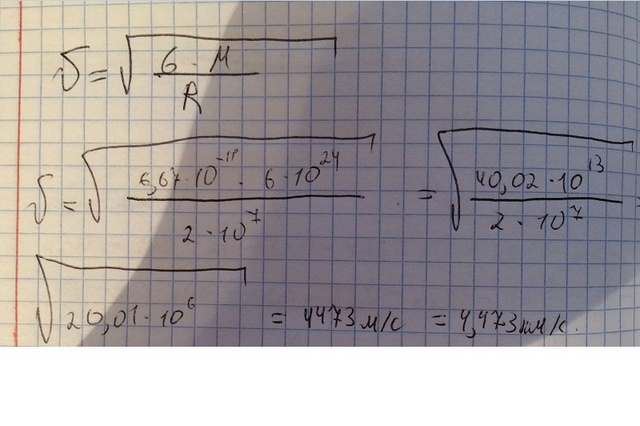 υ = √(G · M / R)
υ = √(6,67 · 10⁻¹¹ · 6 · 10²⁴ / 2 · 10⁷) = √(40,02 · 10¹³ / 2 · 10⁷)
√(20,01 · 10⁶) = 4473 м/с = 4,473 км/с.